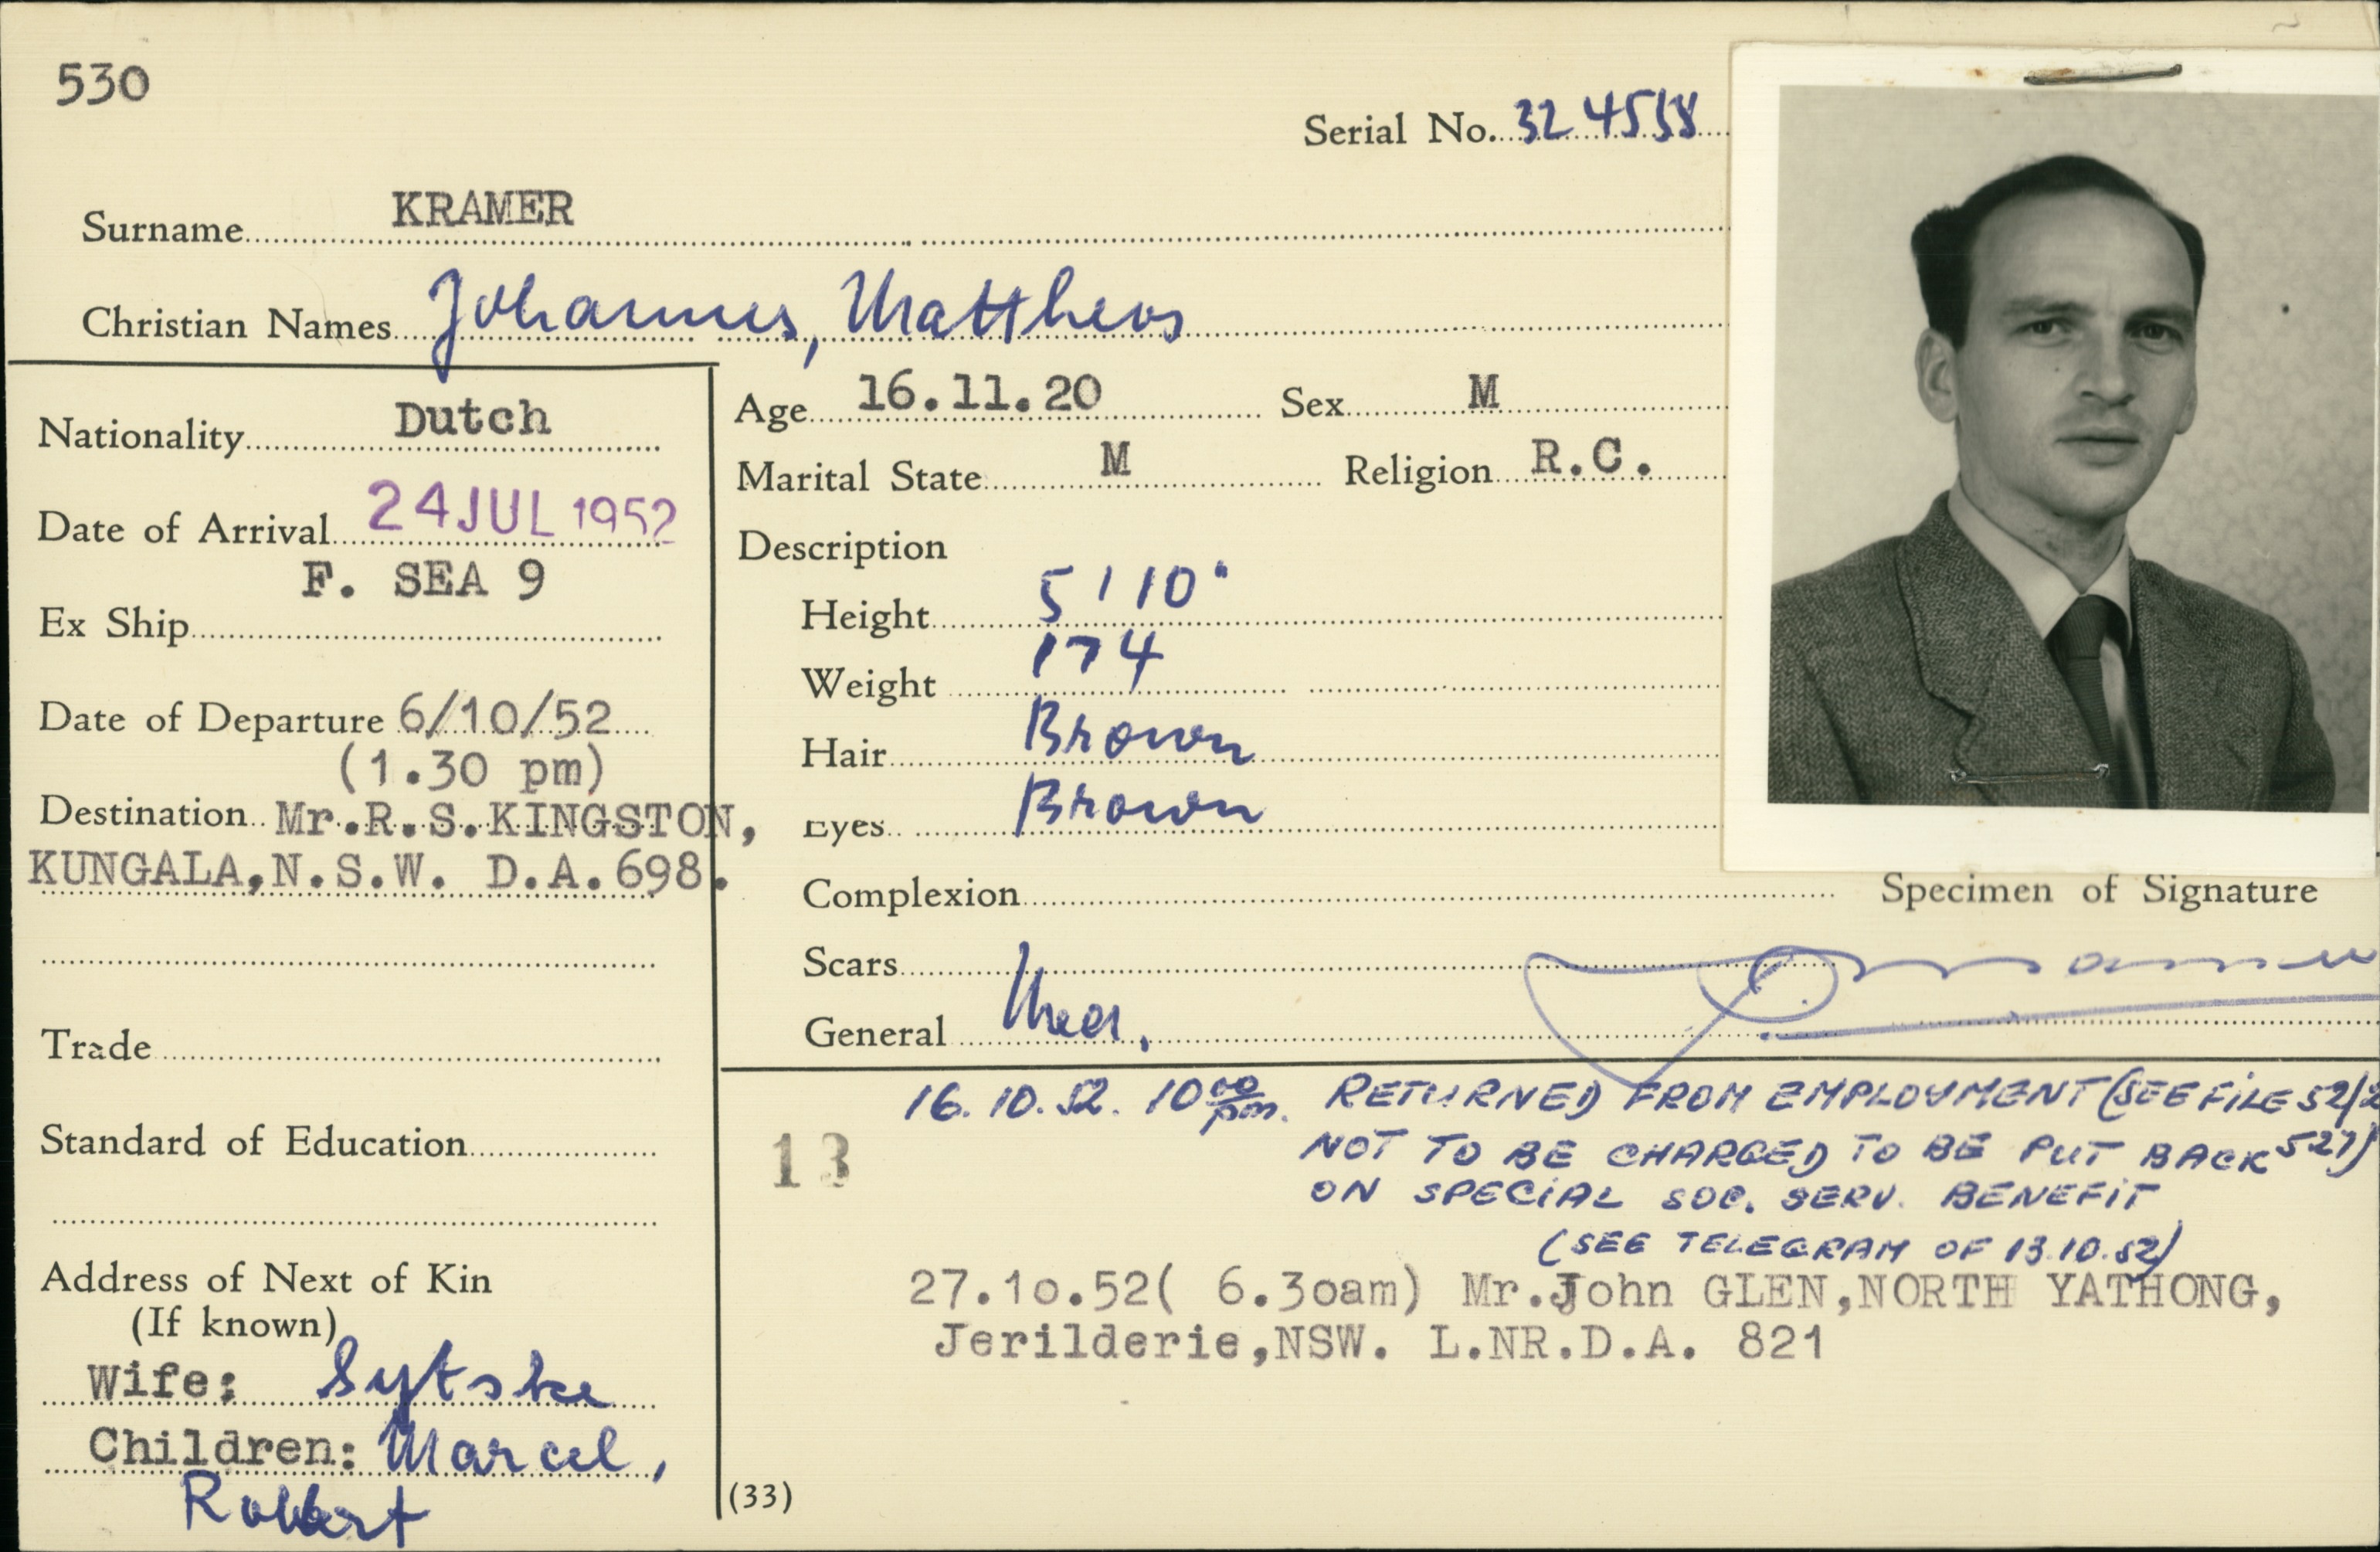 530
Serial No. 324558
Surname KRAMER
Christian Names Johannes, Mattheos
Nationality Dutch
Date of Arrival 24 JUL 1952
F. SEA 9
Ex Ship
Date of Departure 6/10/52
(1.30 pm)
Destination Mr.R.S.KINGSTON,
KUNGALA,N.S.W. D.A.698.
Trade
Standard of Education
Address of Next of Kin
(If known)
Wife: Sytske
Children: Marcel,
Robert
Age 16.11.20 Sex M
Marital State M Religion R.C.
Description
Height 5'10"
Weight 174
Hair Brown
Eyes Brown
Complexion
Scars
General
Specimen of Signature
16.10.52. 10 00/pm. RETURNED FROM EMPLOYMENT (SEE FILE 52/2
13
NOT TO BE CHARGED TO BE PUT BACK 527)
ON SPECIAL SOC. SERV. BENEFIT
(SEE TELEGRAM OF 13.10.52)
27.1o.52( 6.3oam) Mr.John GLEN,NORTH YATHONG,
Jerilderie,NSW. L.NR.D.A. 821
(33)